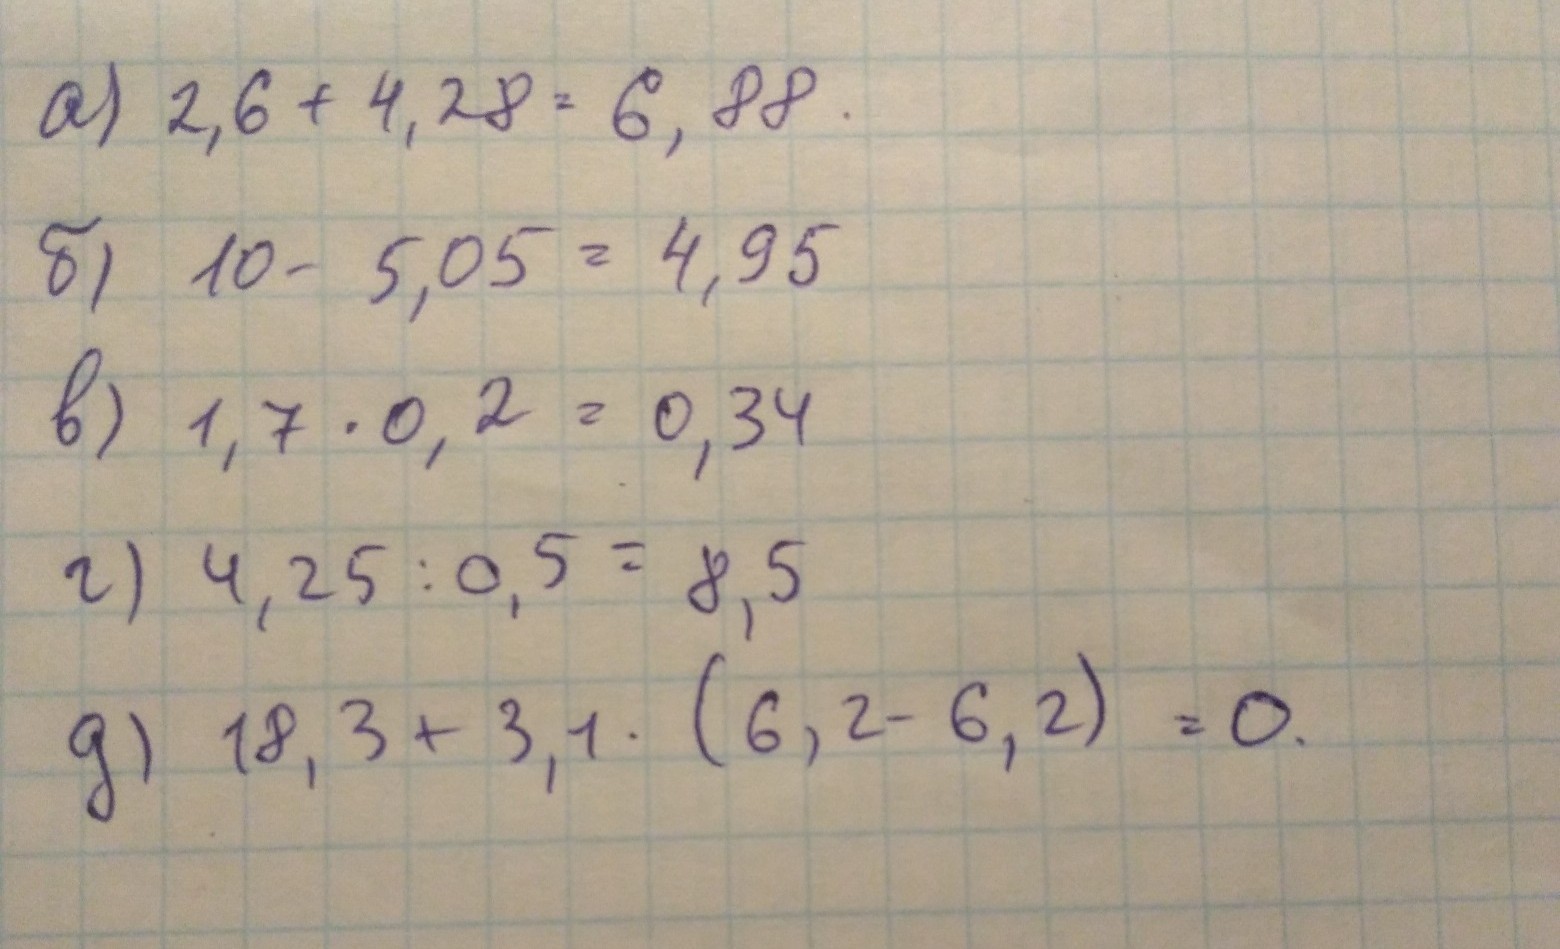 а) 2,6 + 4,28 = 6,88.
б) 10 - 5,05 = 4,95
в) 1,7 · 0,2 = 0,34
г) 4,25 : 0,5 = 8,5
д) 18,3 + 3,1 · (6,2 - 6,2) = 0.